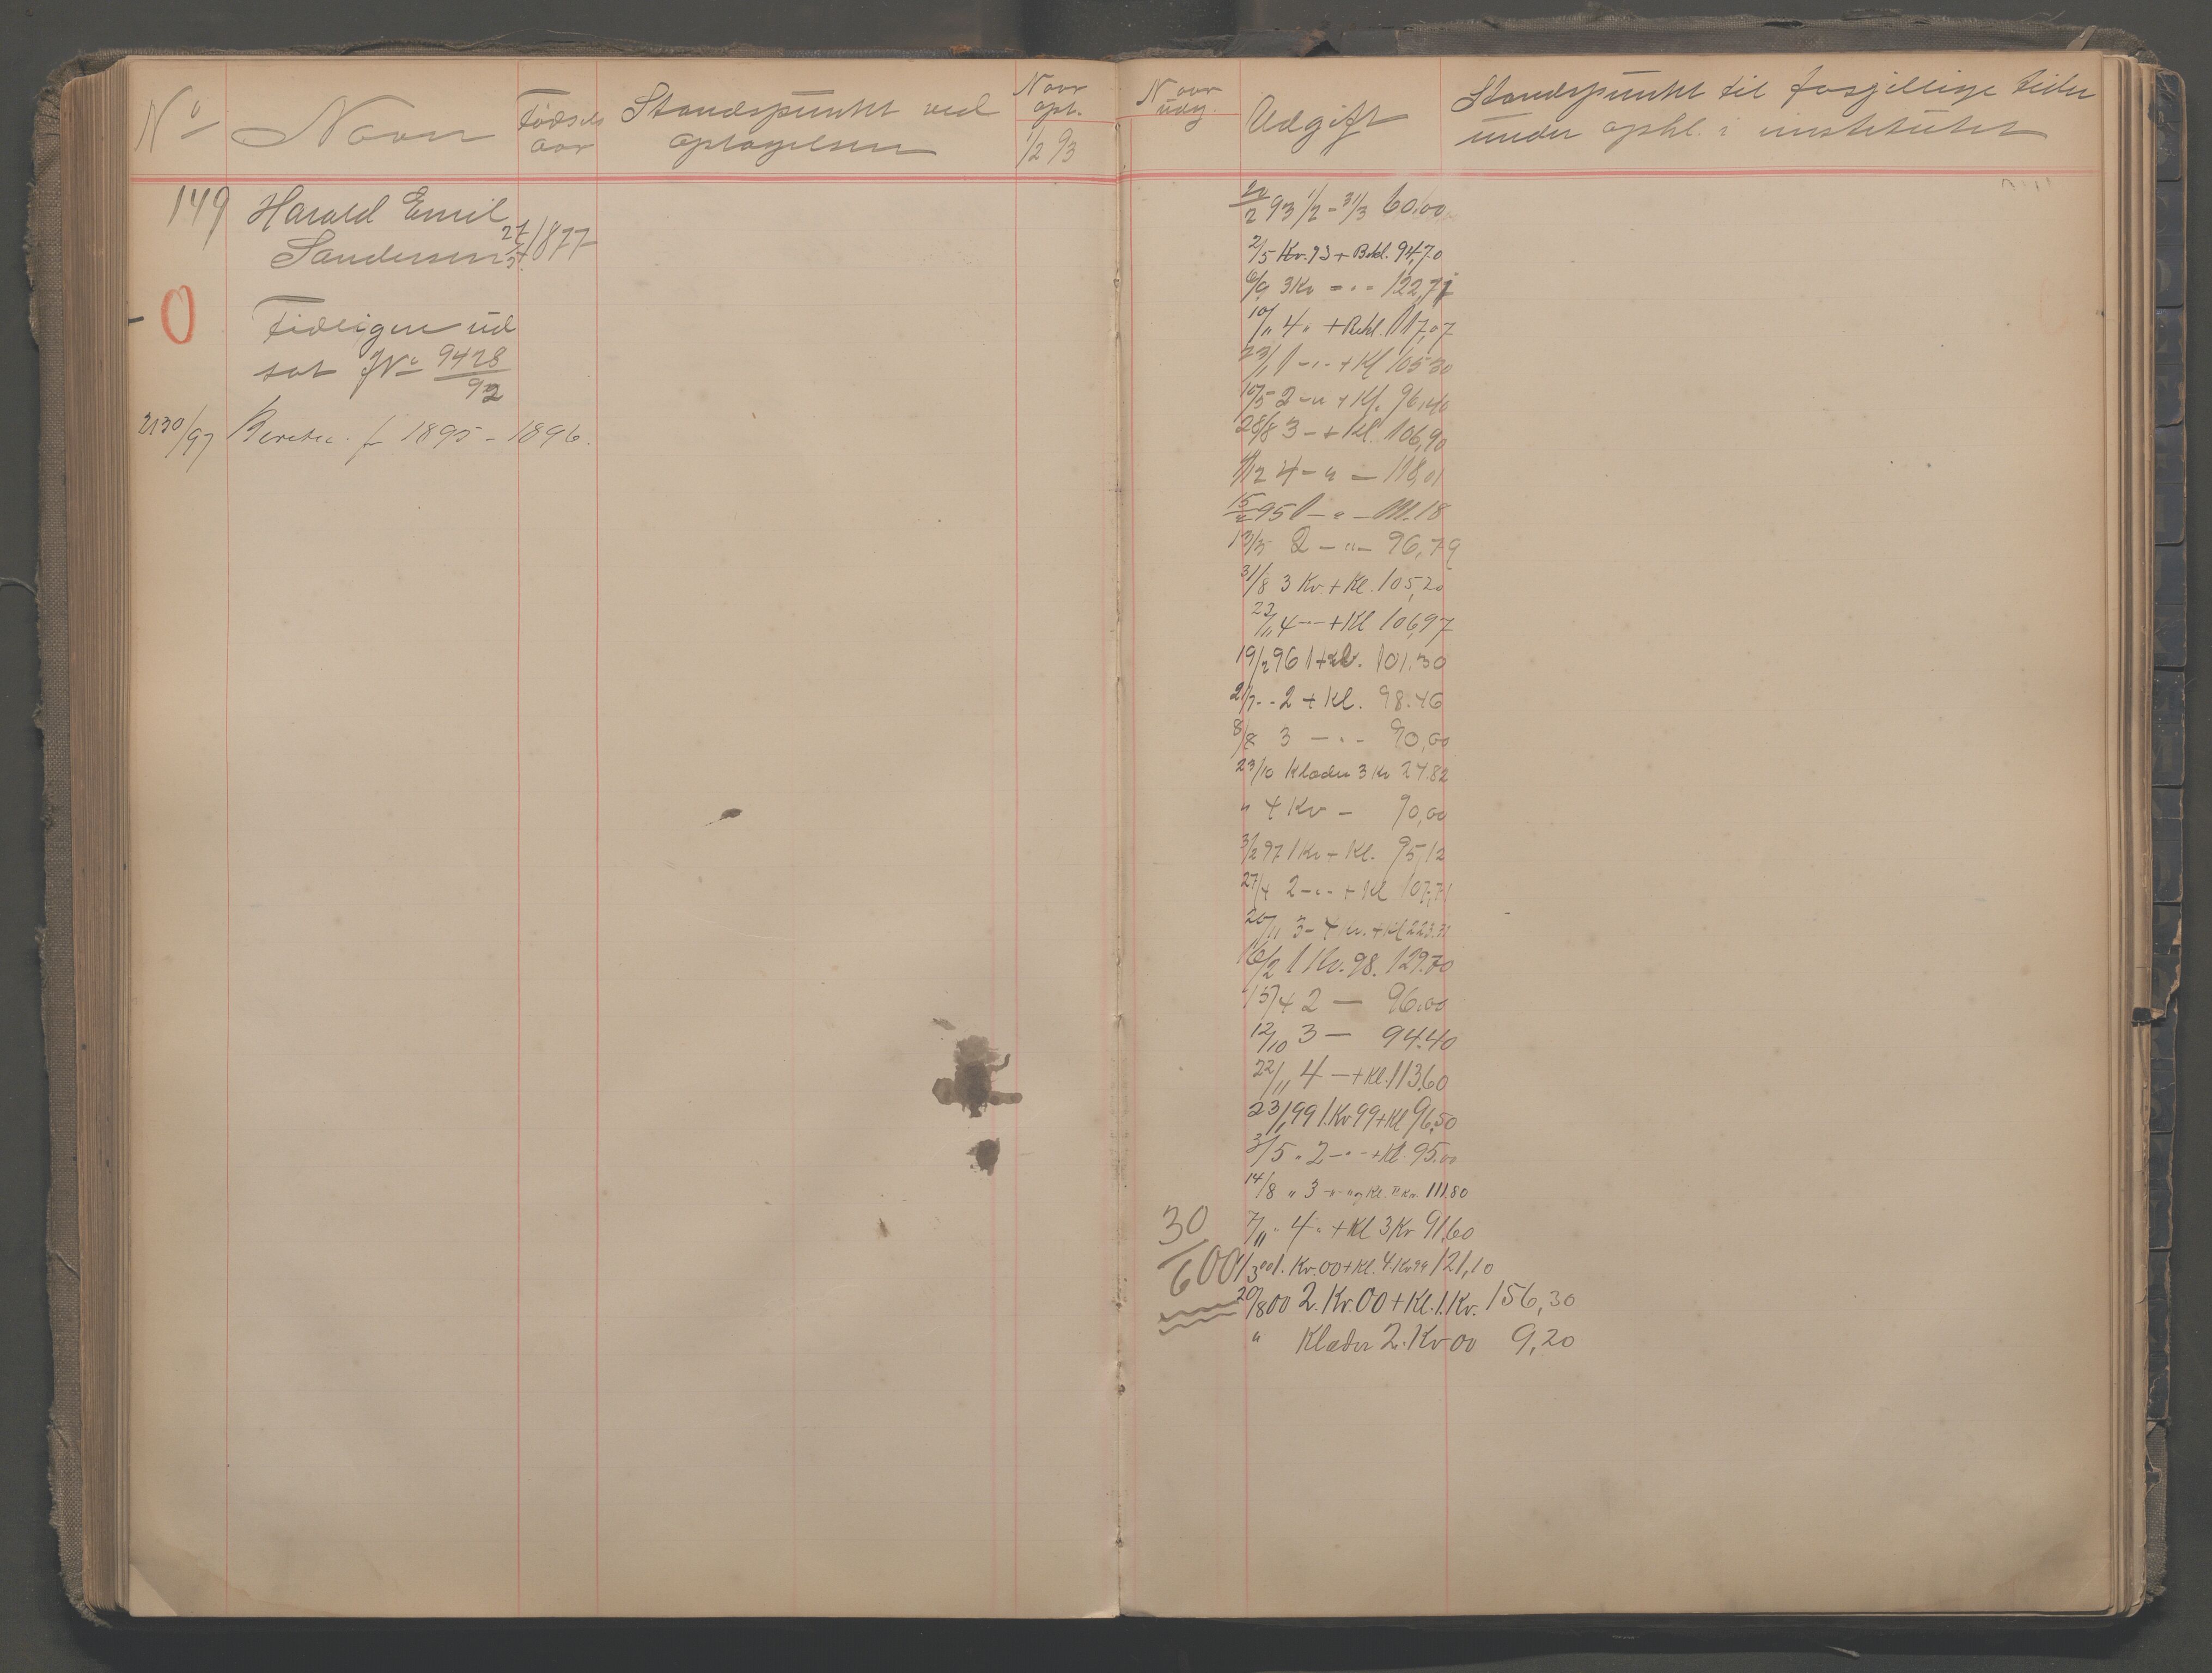 No
Navn
Fødsels
aar
Standspunkt ved
optagelsen
Naar
opt.
1/2 93
149 Harald Emil
Sandersen 27/5 1877
0
Tidligere ud
sat JNo 9428/92
2130/97 Beretn. f 1895 - 1896.
Naar
udg.
Udgift
Standspunkt til forsjellige tider
under ophl. i institutet
93 1/2 - 31/3 60.00
2/5 Kv. 93 + Bekl. 94,70
6/9 3 Kv - " - 122,71
10/11 4 " + Bekl. 117,07
23/1 1 - " - + Kl 105 30
10/5 2 - " + Kl. 96,40
28/8 3 - + Kl. 106,90
4 - " - 118,01
15/2 95 1 - " - 111.18
13/5 2 - " - 96,79
31/8 3 Kv. + Kl. 105,20
22/11 4 - " - + Kl 106,97
19/2 96 1 + Kl. 101.30
2 + Kl. 98.46
8/8 3 - " - 90,00
23/10 Klæder 3 Kv 24.82
" 4 Kv - 90,00
3/2 97 1 Kv + Kl. 95,12
27/4 2 - " - + Kl 107,71
20/11 3 - 4 Kv. + Kl 223.31
16/2 1 Kv. 98. 129.70
15/4 2 — 96.00
12/10 3 — 94.40
22/11 4 — + Kl. 113.60
23/1 99 1. Kv 99 + Kl 96,50
3/5 " 2 - " - + Kl. 95.00
14/8 " 3 - " - og Kl. 2 Kv. 111.80
30
7/11 " 4 " + Kl 3 Kv 91.60
600
1/3 00 1. Kv. 00 + Kl. 4. Kv 99 121,10
20/8 00 2. Kv. 00 + Kl. 1. Kv. 156,30
" Klæder 2. Kv 00 9,20